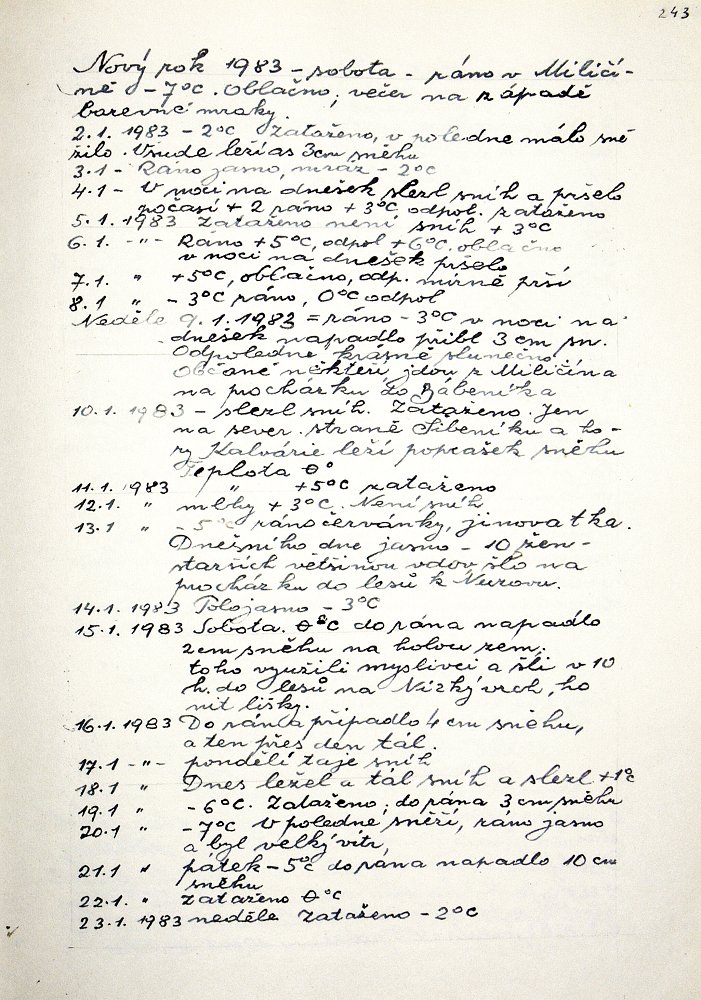 243
Nový rok 1983 - sobota - ráno v Miličí-
ně - 7°C. Oblačno; večer na západě
barevné mraky.
2.1. 1983 - 2°C Zataženo, v poledne málo sně
žilo. Všude leží as 3 cm sněhu
3.1 - Ráno jasno, mráz - 2°C
4.1 - V noci na dnešek slezl sníh a pršelo
počasí + 2 ráno + 3°C odpol. zataženo
5.1. 1983 Zataženo není sníh + 3°C
6.1. -"- Ráno +5°C, odpol +6°C. oblačno
v noci na dnešek pršelo
7.1. " +5°C, oblačno, odp. mírně prší
8.1 " - 3°C ráno, 0°C odpol
Neděle 9.1.1983 = ráno - 3°C v noci na
dnešek napadlo přibl 3 cm sn.
Odpoledne krásně slunečno
Občané někteří jdou z Miličína
na procházku do Bábeníka
10.1. 1983 - slezl sníh. Zataženo. Jen
na sever. straně Šibeníku a ho-
ry Kalvárie leží poprašek sněhu
Teplota 0°
11.1. 1983 " +5°C zataženo
12.1. " mlhy + 3°C. Není sníh
13.1 " - 5°C ráno červánky, jinovatka.
Dnešního dne jasno - 10 žen-
starších většinou vdov šlo na
procházku do lesů k Nuzovu.
14.1. 1983 Polojasno - 3°C
15.1. 1983 Sobota. 0°C do rána napadlo
2cm sněhu na holou zem;
toho využili myslivci a šli v 10
h. do lesů na Nízký vrch, ho
nit lišky.
16.1. 1983 Do rána připadlo 4 cm sněhu,
a ten přes den tál.
17.1 -"- pondělí taje sníh
18.1 " Dnes ležel a tál sníh a slezl +1°C
19.1 " - 6°C. Zataženo; do rána 3 cm sněhu
20.1 " - 7°C V poledne sněží, ráno jasno
a byl velký vítr,
21.1 " pátek - 5°C do rána napadlo 10 cm
sněhu
22.1. " Zataženo 0°C
23.1. 1983 neděle Zataženo - 2°C